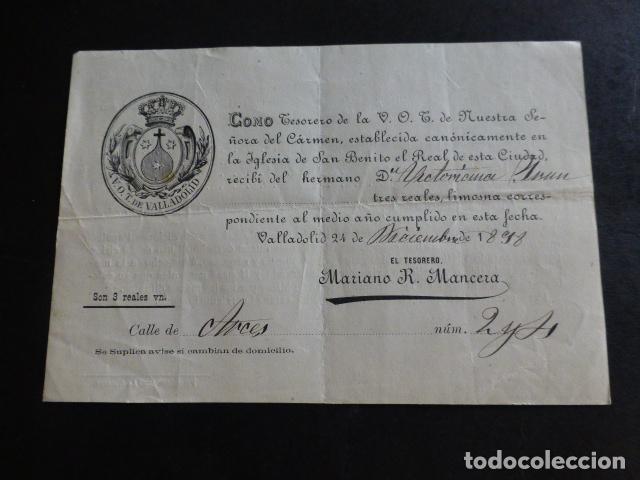 V. O. T. DE VALLADOLID
COMO Tesorero de la V. O. T. de Nuestra Se-
ñora del Cármen, establecida canónicamente en
la Iglesia de San Benito el Real de esta Ciudad,
recibí del hermano Dª Victoriana
tres reales, limosna corres-
pondiente al medio año cumplido en esta fecha.
Valladolid 24 de Diciembre de 1898
EL TESORERO,
Mariano R. Mancera
Son 3 reales vn.
Calle de Arces núm. 2 y 4
Se Suplica avise si cambian de domicilio.
todocoleccion